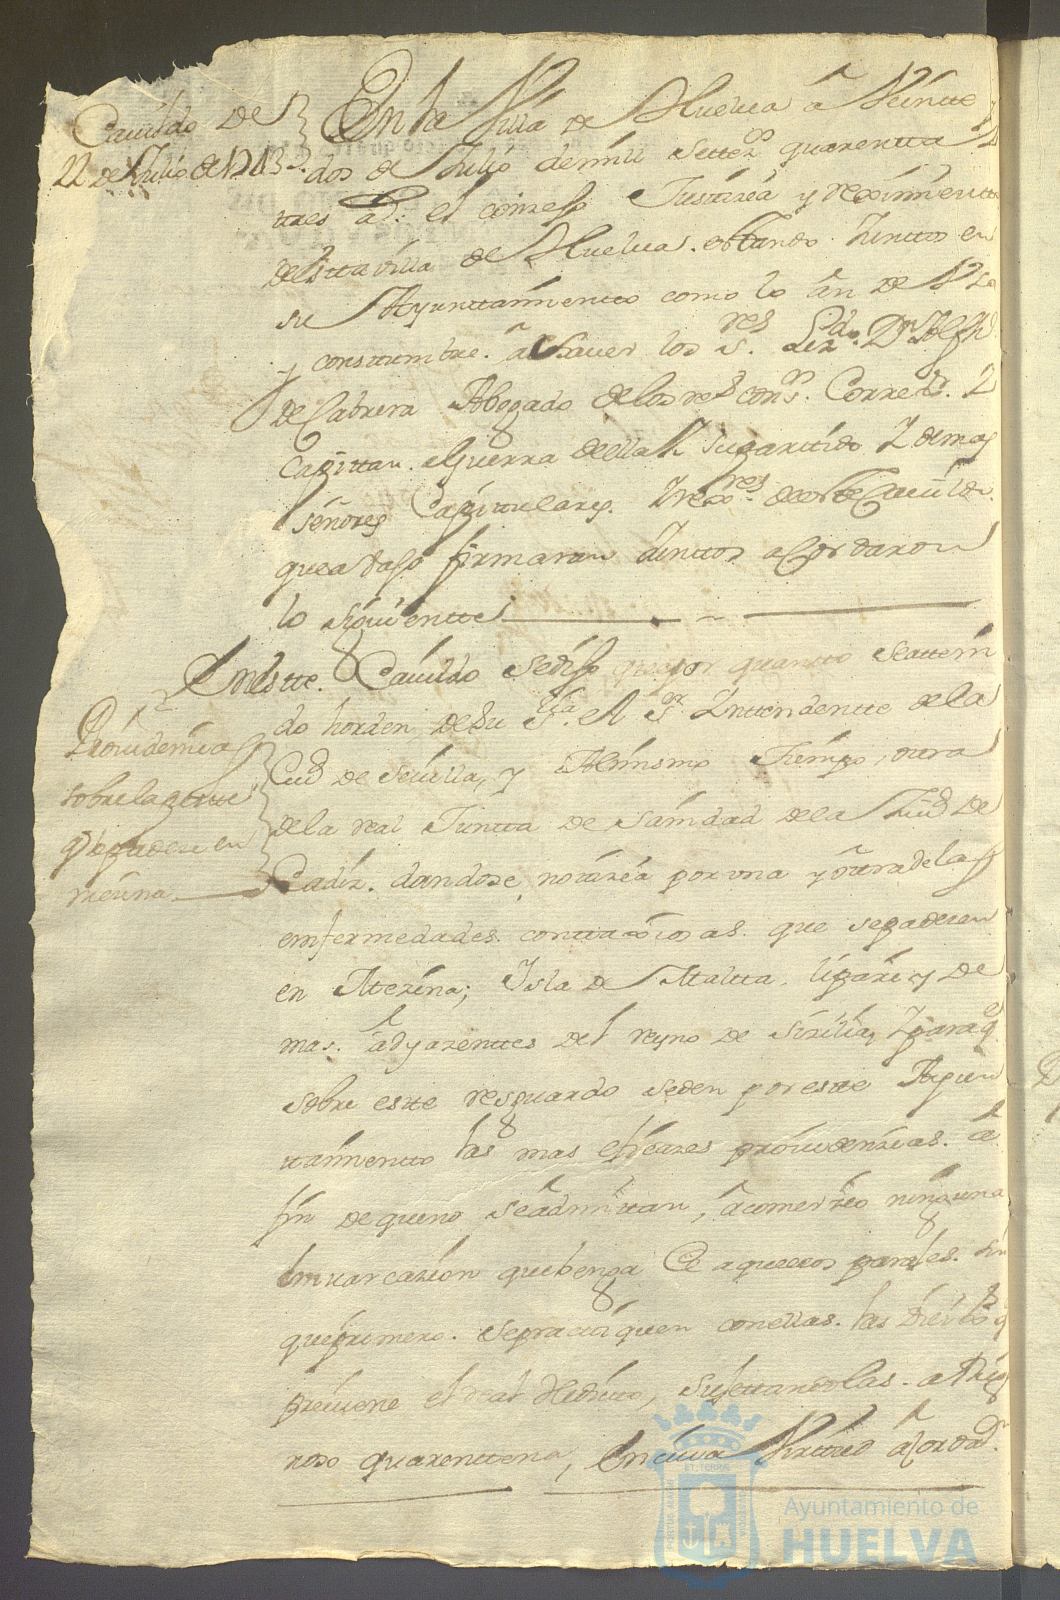 Cavildo de
22 de Julio de 1743
En la Villa de Huelva â Veintte
dos de Julio de mill settezos quarentta
tres ad. el consejo Justizia y reximientto
destta villa de Huelva. estando Junttos en
su Ayunttamientto como lo an de Uso
y consttumbre. â saver los Sres Lizdo Dn
de Cabrera Abogado de los rs cons. Corredr. Y
Capittan. a guerra della Y su partido Y demas
señores Capittulares. Y rexres de este Cavildo
que avajo firmaran Junttos acordaron
lo siguientte
En estte. Cavildo se dijo que por quantto se a tteni
do horden de su Sria. el Sr Yntendentte de la
Ciud de sevilla, y Al mismo Tiempo, otra
de la real Juntta de sanidad de la Ziud de
Cadiz. dandose, notizia por una y otra de las
enfermedades. conttaxiosas. que se padecen
en Mezina; Isla de Maltta. lipari y de
mas. adyazenttes del reyno de Sizilia, Y para q
sobre estte resguardo se den por estte Ayun
ttamientto las mas eficazes providenzias. â
fin de que no se admittan, â comerzio ninguna
embarcazion que benga de aquellos parajes. sin
que primero. se practiquen con ellas. las
previene el real Edictto, sujettandolas. a
roso quarenttena, En cuia Virttud âcordar.
Providencia
sobre la peste
q se padece en
mecina
Ayuntamiento de
HUELVA